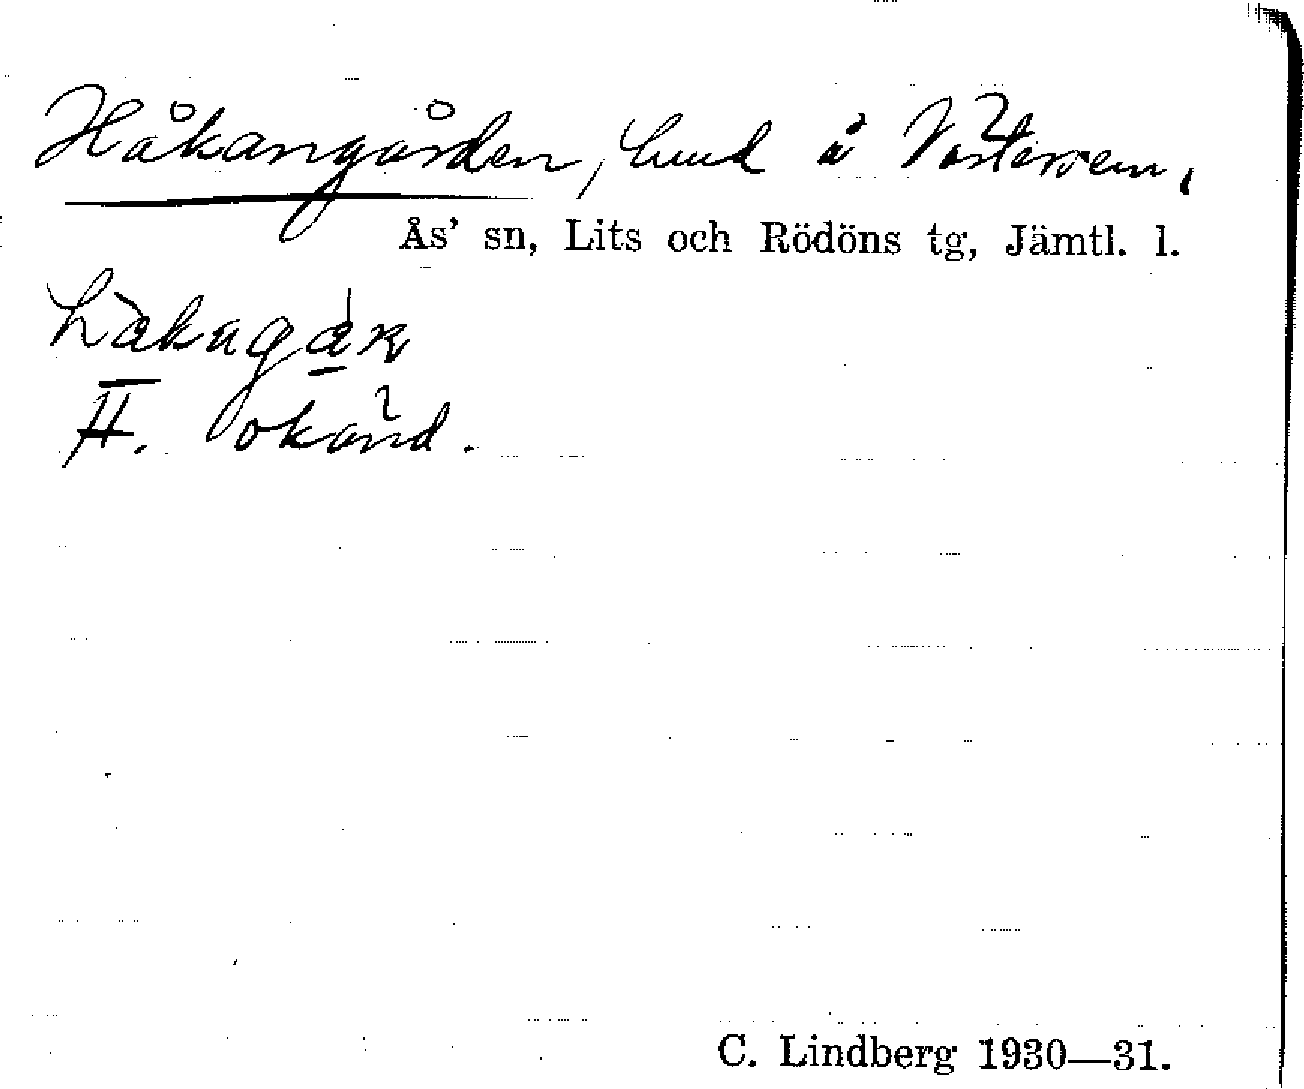 Håkangården, hmd å Västerrem,
Ås' sn, Lits och Rödöns tg, Jämtl. l.
hàkagàṛṇ
H. okänd.
C. Lindberg 1930—31.